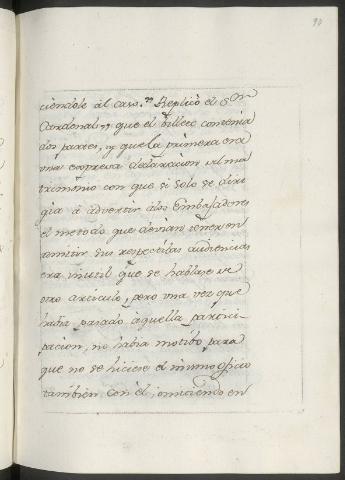 90
ciendole àl caso.” Replicò el S.or
Cardenal ” que el villete contenia
dos partes, y que la primera era
una expresa declaracion al ma
trimonio con que si solo se diri
gia à advertir àlos Embaxadores
el metodo que devian tener en
omitir sus respectibas audiencias
era inutil que se hablase de
otro articulo, pero una vez que
havia pasado àquella partici-
pacion, no havia motibo para
que no se hiciese el mismo oficio
tambien con èl, omitiendo en